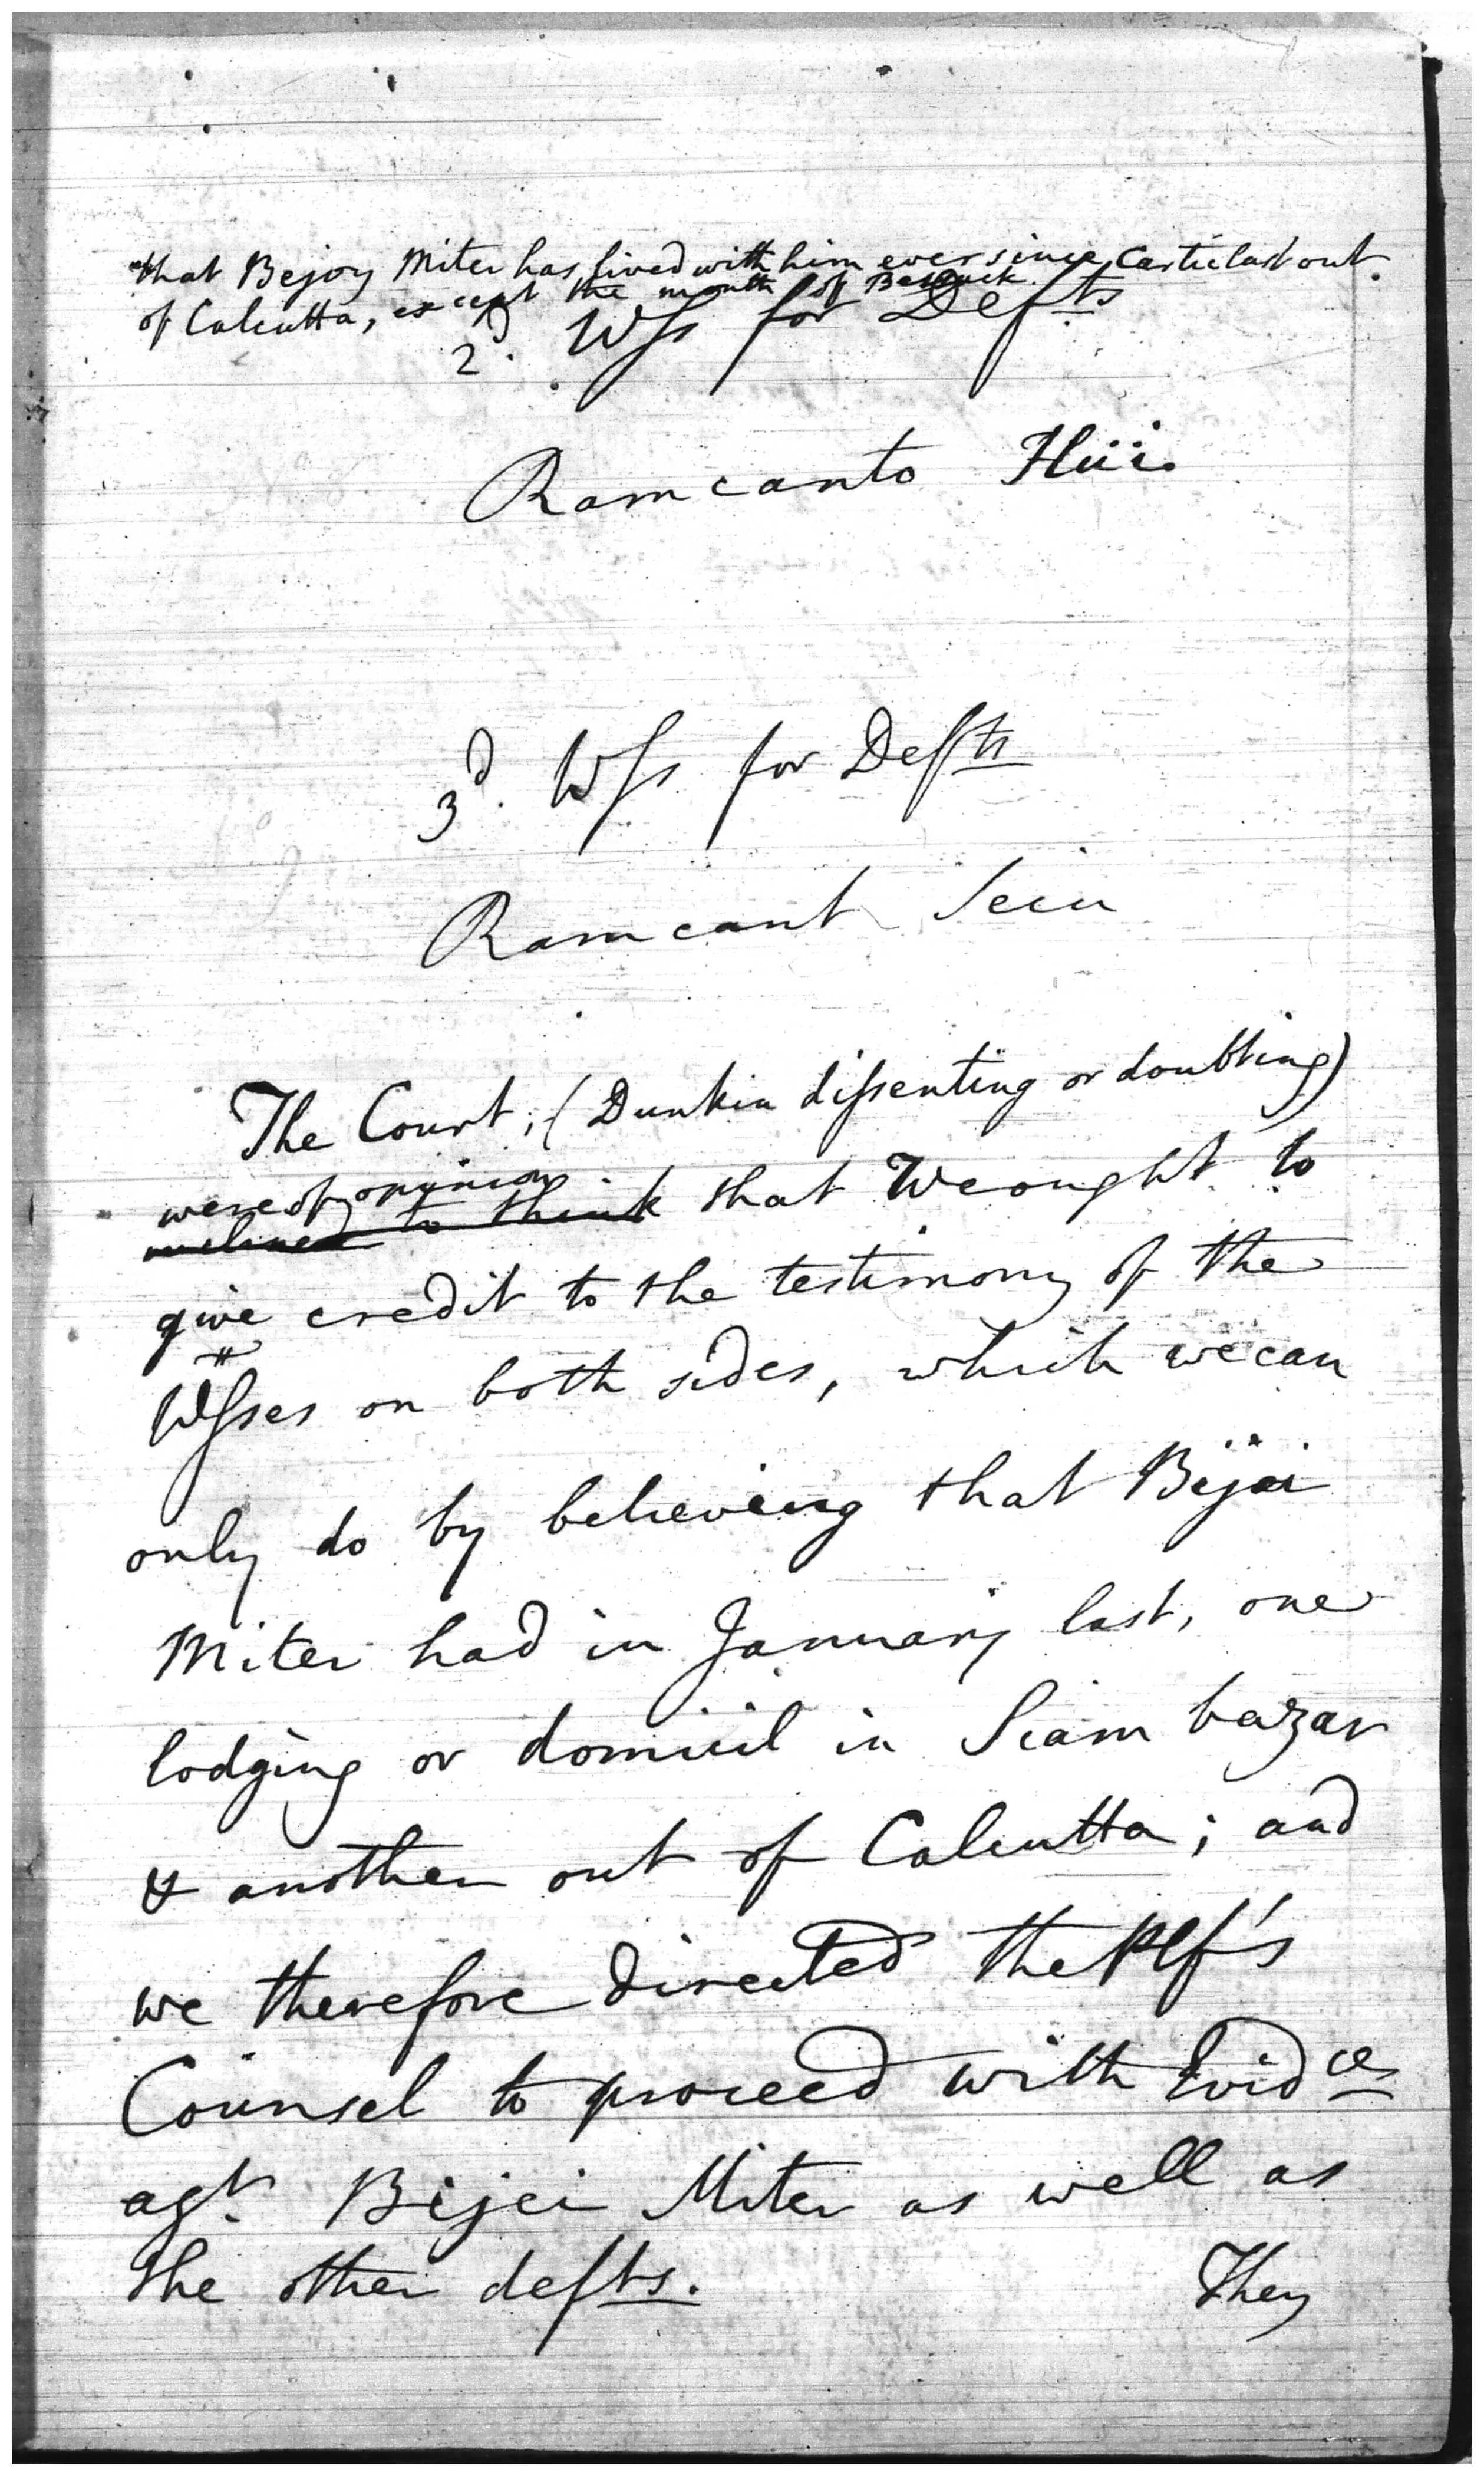 that Bejoy Miter has lived with him ever since Cartic last out
of Calcutta, except the month of Bysack.
2d. Wss for Defts
Ramcanto
3d. Wss for Defts
Ramcant Sein
The Court, (Dunkin dissenting or doubting)
were of opinion
inclined to think that We ought to
give credit to the testimony of the
Wsses on both sides, which we can
only do by believing that Bijai
Miter had in January last, one
lodging or domicil in Siam bazar
& another out of Calcutta; and
we therefore directed the Plf's
Counsel to proceed with Evidce
agt. Bijei Miter as well as
the other defts.
They